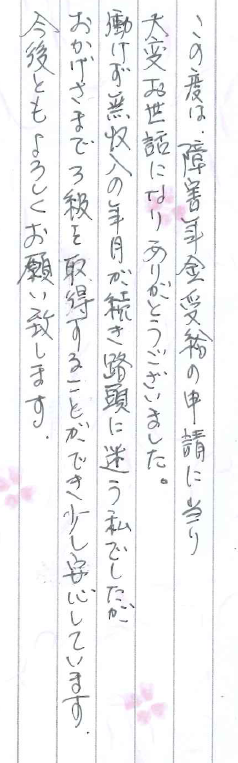 この度は、障害年金受給の申請に当り
大変お世話になりありがとうございました。
働けず無収入の年月が続き路頭に迷う私でしたが
おかげさまで3級を取得することができ少し安心しています.
今後ともよろしくお願い致します.